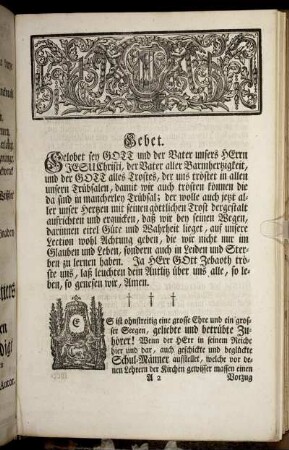 Gebet.
Gelobet sey GOTT und der Vater unsers HErrn
JESU Christi, der Vater aller Barmhertzigkeit,
und der GOTT alles Trostes, der uns tröstet in allen
unsern Trübsalen, damit wir auch trösten können die
da sind in mancherley Trübsal; der wolle auch jetzt al-
ler unser Hertzen mit seinen göttlichen Trost dergestalt
aufrichten und erquicken, daß wir bey seinen Wegen,
darinnen eitel Güte und Wahrheit lieget, auf unsere
Lection wohl Achtung geben, die wir nicht nur im
Glauben und Leben, sondern auch in Leiden und Ster-
ben zu lernen haben. Ja HErr GOtt Zebaoth trö-
ste uns, laß leuchten dein Antlitz über uns alle, so le-
ben, so genesen wir, Amen.
† † †
ES ist ohnstreitig eine grosse Ehre und ein gros-
ser Seegen, geliebte und betrübte Zu-
hörer! Wenn der HErr in seinem Reiche
hier und dar, auch geschickte und beglückte
Schul-Männer aufstellet, welche vor de-
nen Lehrern der Kirchen gewisser massen einen
A 2 Vorzug